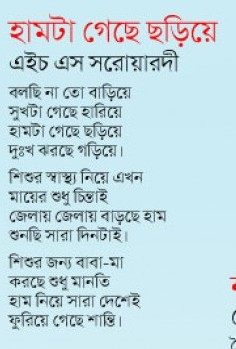 হামটা গেছে ছড়িয়ে
এইচ এস সরোয়ারদী
বলছি না তো বাড়িয়ে
সুখটা গেছে হারিয়ে
হামটা গেছে ছড়িয়ে
দুঃখ ঝরছে গড়িয়ে।
শিশুর স্বাস্থ্য নিয়ে এখন
মায়ের শুধু চিন্তাই
জেলায় জেলায় বাড়ছে হাম
শুনছি সারা দিনটাই।
শিশুর জন্য বাবা-মা
করছে শুধু মানতি
হাম নিয়ে সারা দেশেই
ফুরিয়ে গেছে শান্তি।